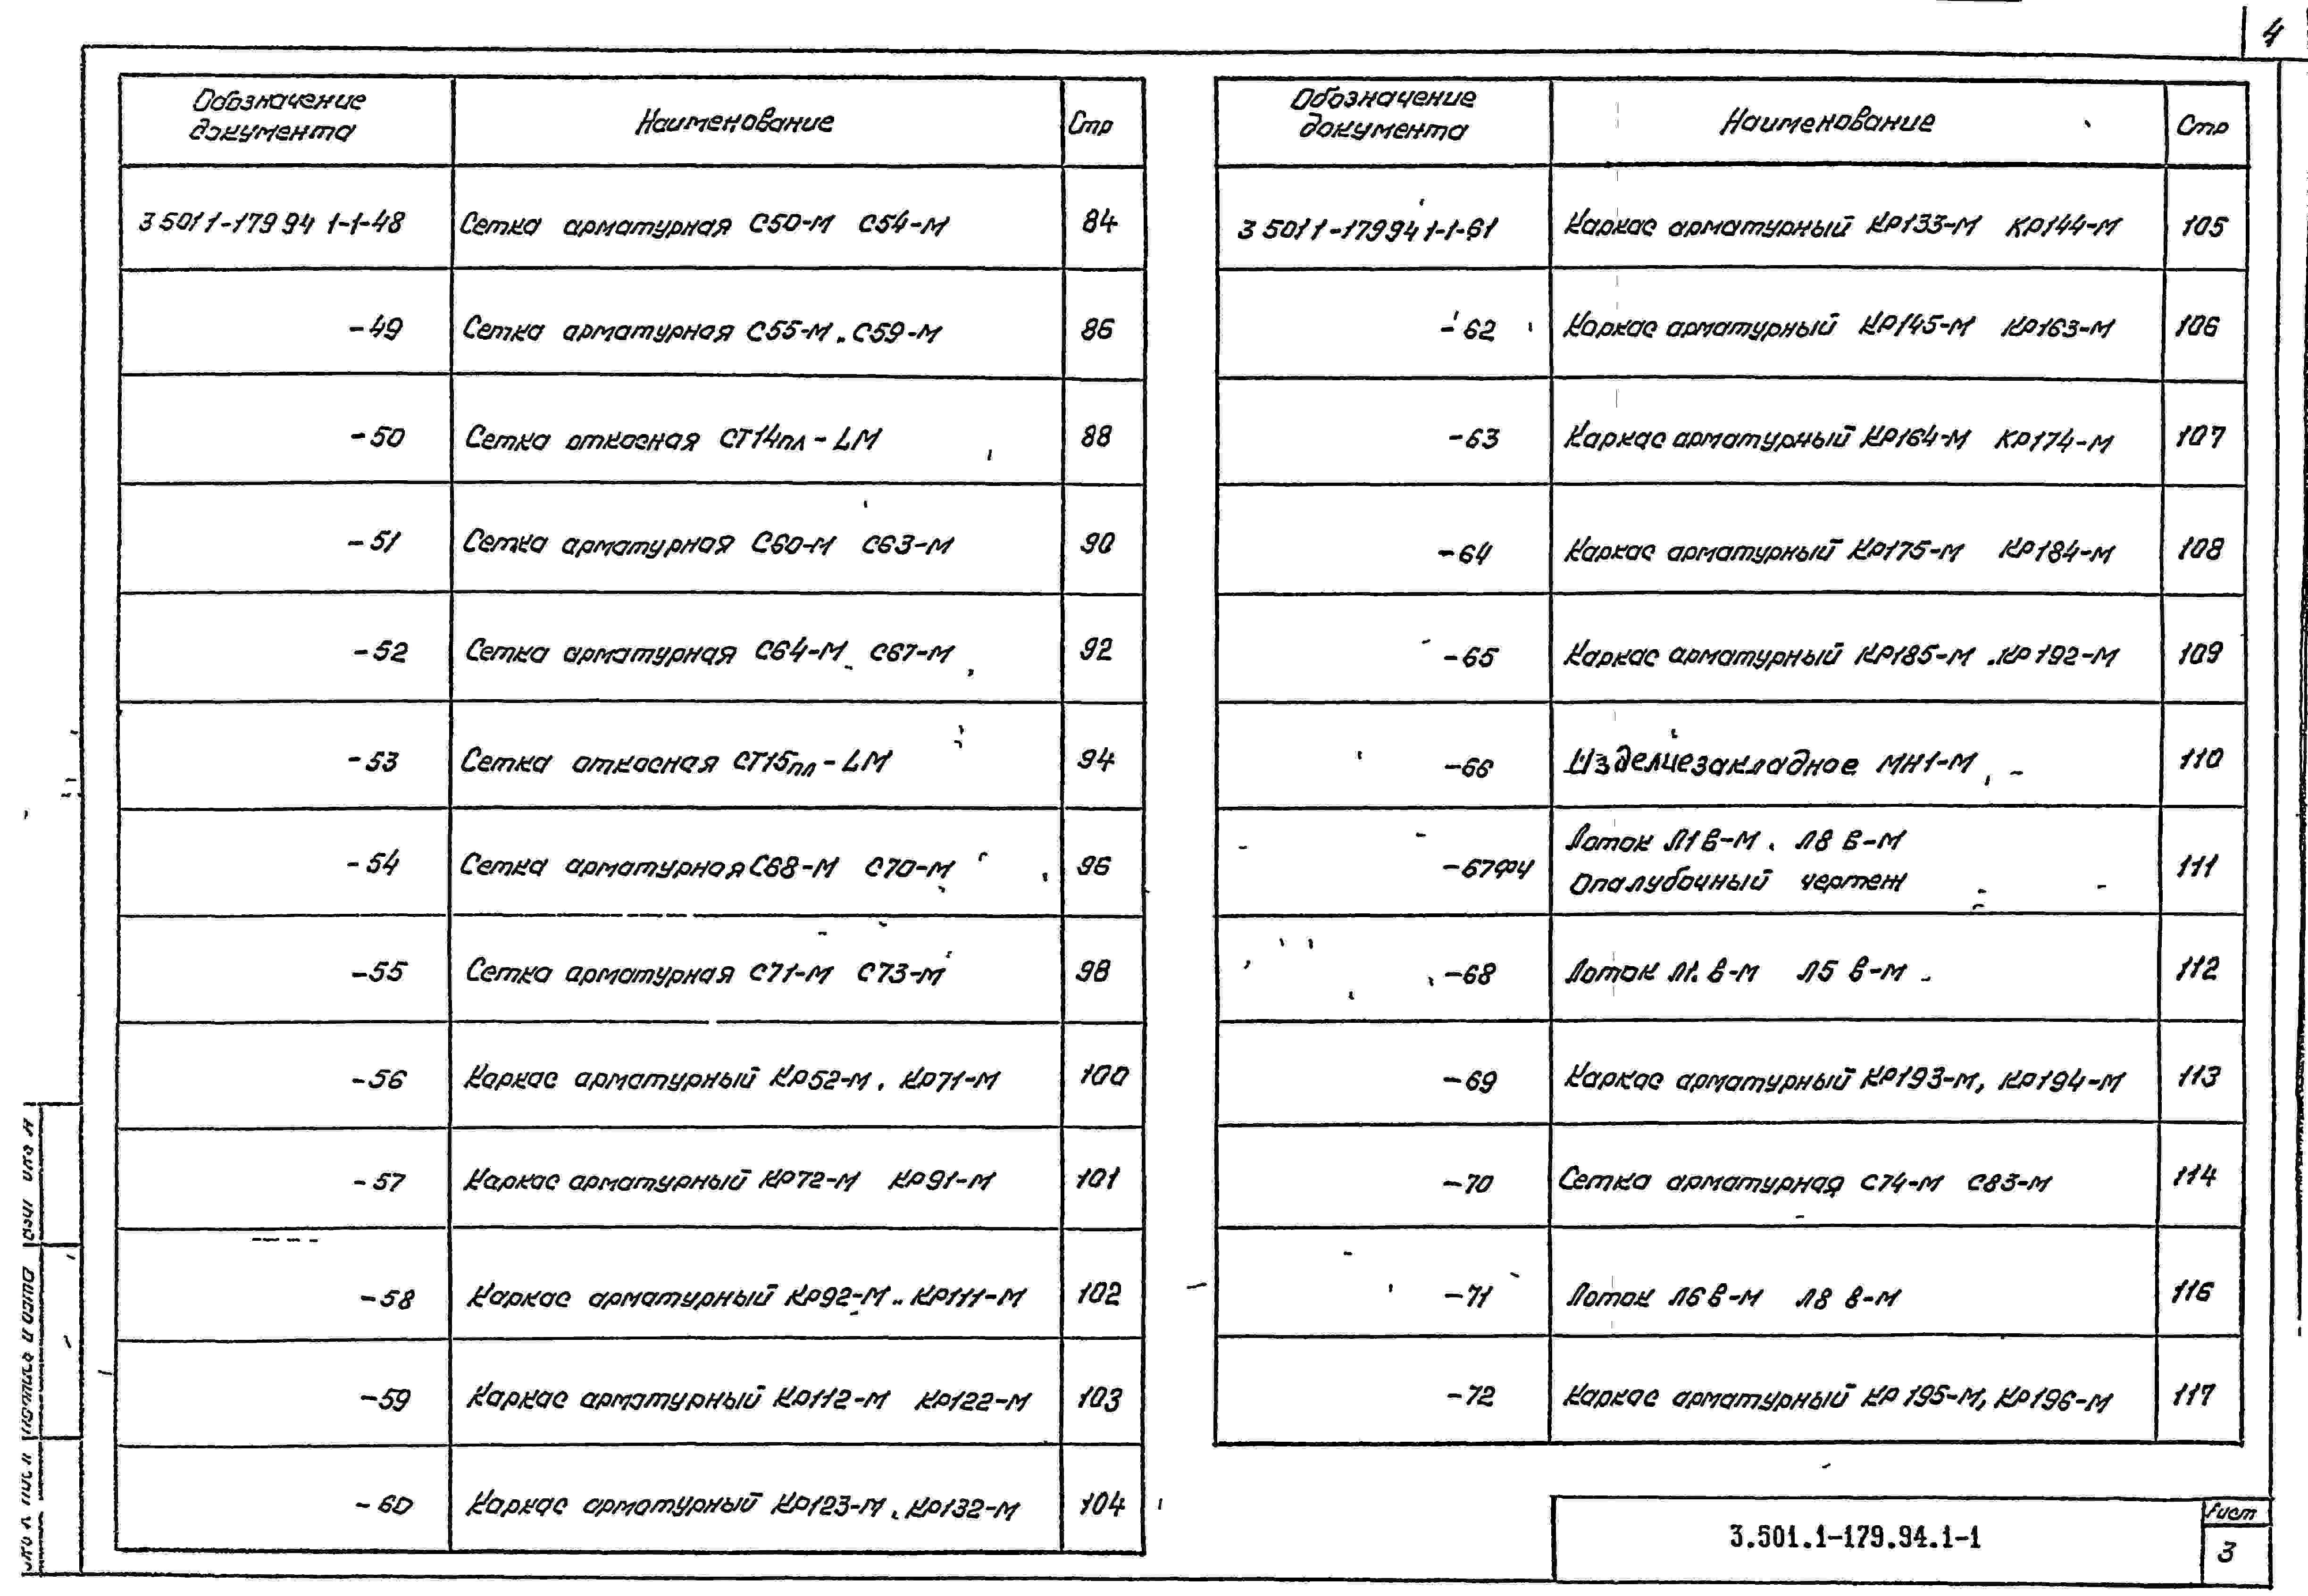 4
Обозначение документа Наименование Стр
3 501 1-179 94 1-1-48 Сетка арматурная С50-М С54-М 84
-49 Сетка арматурная С55-М..С59-М 86
-50 Сетка откосная СТ14пл-LМ 88
-51 Сетка арматурная С60-М С63-М 90
-52 Сетка арматурная С64-М С67-М 92
-53 Сетка откосная СТ15пл-LМ 94
-54 Сетка арматурная С68-М С70-М 96
-55 Сетка арматурная С71-М С73-М 98
-56 Каркас арматурный КР52-М. КР71-М 100
-57 Каркас арматурный КР72-М КР91-М 101
-58 Каркас арматурный КР92-М..КР111-М 102
-59 Каркас арматурный КР112-М КР122-М 103
-60 Каркас арматурный КР123-М. КР132-М 104
Обозначение документа Наименование Стр
3 501 1-179 94 1-1-61 Каркас арматурный КР133-М КР144-М 105
-62 Каркас арматурный КР145-М КР163-М 106
-63 Каркас арматурный КР164-М КР174-М 107
-64 Каркас арматурный КР175-М КР184-М 108
-65 Каркас арматурный КР185-М .КР192-М 109
-66 Изделие закладное МН1-М 110
-67ФЧ Лоток Л1 В-М. Л8 В-М
Опалубочный чертеж 111
-68 Лоток Л1. В-М Л5 В-М 112
-69 Каркас арматурный КР193-М, КР194-М 113
-70 Сетка арматурная С74-М С83-М 114
-71 Лоток Л6 В-М Л8 В-М 116
-72 Каркас арматурный КР195-М, КР196-М 117
3.501.1-179.94.1-1
Лист
3